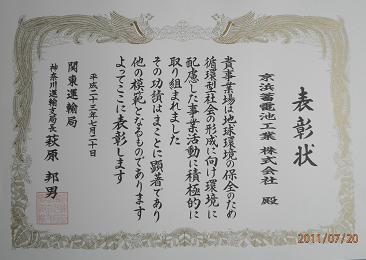 表彰状
京浜蓄電池工業 株式会社 殿
貴事業場は地球環境の保全のため
循環型社会の形成に向け環境に
配慮した事業活動に積極的に
取り組まれました
その功績はまことに顕著であり
他の模範となるものであります
よってここに表彰します
平成二十三年七月二十日
関東運輸局
神奈川運輸支局長 萩原 邦男
2011/07/20